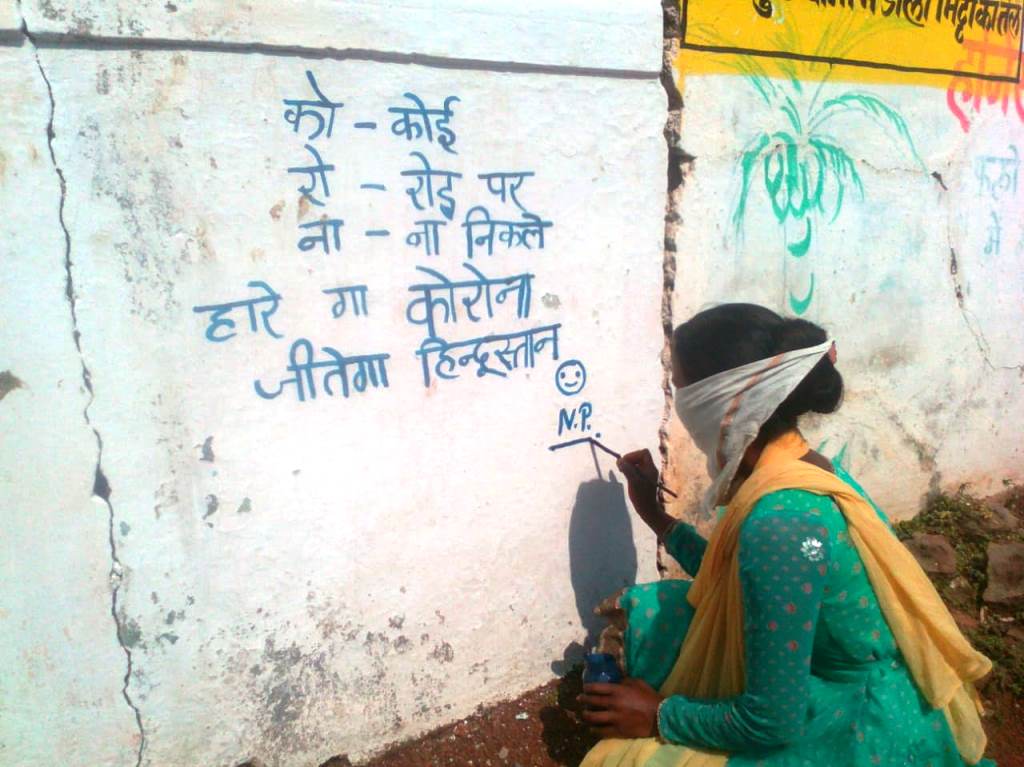 को - कोई
रो - रोड़ पर
ना - ना निकले
हारे गा कोरोना
जीतेगा हिन्दूस्तान
N.P.
मिट्टी का तेल